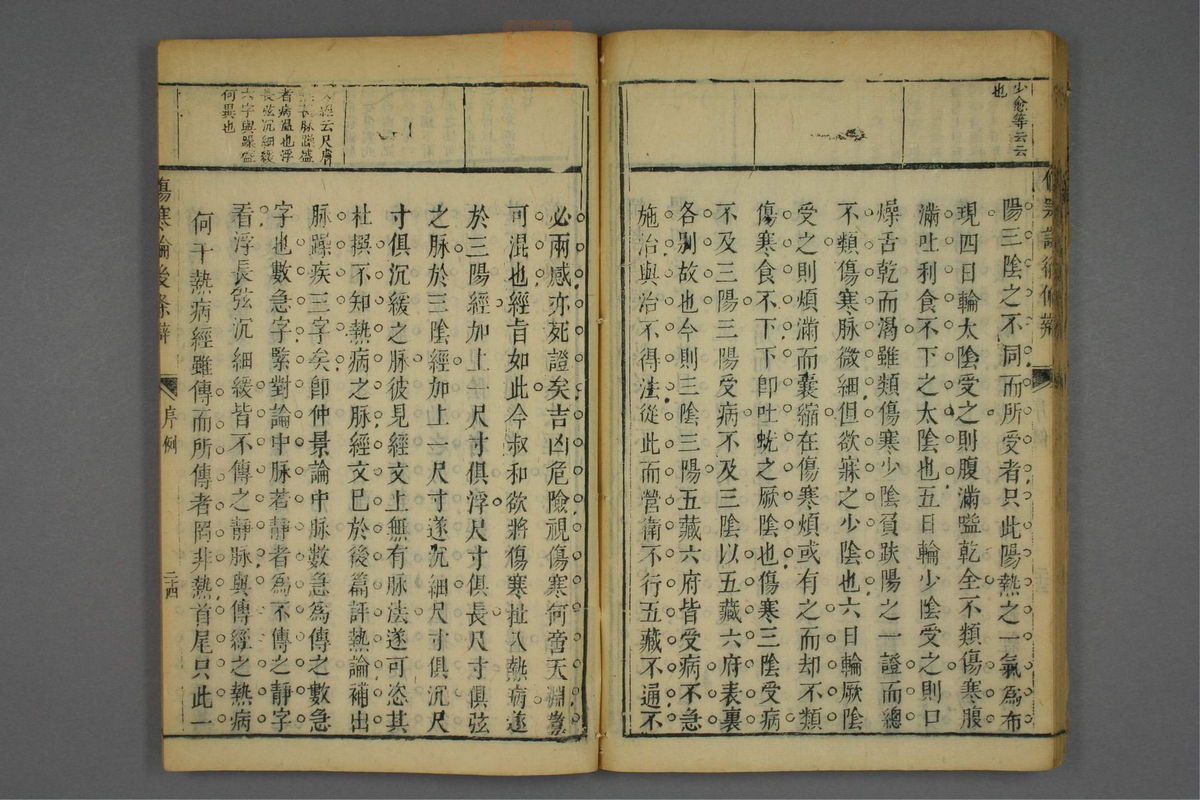 少愈等云云
也
陽三陰之不同而所受者只此陽熱之一氣為布
現四日輪太陰受之則腹滿嗌乾全不類傷寒腹
滿吐利食不下之太陰也五日輪少陰受之則口
燥舌乾而渴雖類傷寒少陰負趺陽之一證而總
不類傷寒脉微細但欲寐之少陰也六日輪厥陰
受之則煩滿而囊縮在傷寒煩或有之而却不類
傷寒食不下下卽吐蚘之厥陰也傷寒三陰受病
不及三陽三陽受病不及三陰以五藏六府表裏
各别故也今則三陰三陽五藏六府皆受病不急
施治與治不得法從此而營衛不行五藏不通不
云尺膚
脉躁盛
者病溫也浮
長弦沉細緩
六字與躁盛
何異也
必兩感亦死證矣吉凶危險視傷寒何啻天淵豈
可混也經旨如此今叔和欲將傷寒扯入熱病遂
於三陽經加上一尺尺寸俱浮尺寸俱長尺寸俱弦
之脉於三陰經加上一尺寸遂沉細尺寸俱沉尺
寸俱沉緩之脉彼見經文上無有脉法遂可恣其
杜撰不知熱病之脉經文已於後篇評熱論補出
脉躁疾三字矣卽仲景論中脉數急為傳之數急
字也數急字緊對論中脉若靜者為不傳之靜字
看浮長弦沉細緩皆不傳之靜脉與傳經之熱病
何干熱病經雖傳而所傳者罔非熱首尾只此一
傷寒論後條辨
序例
二十四